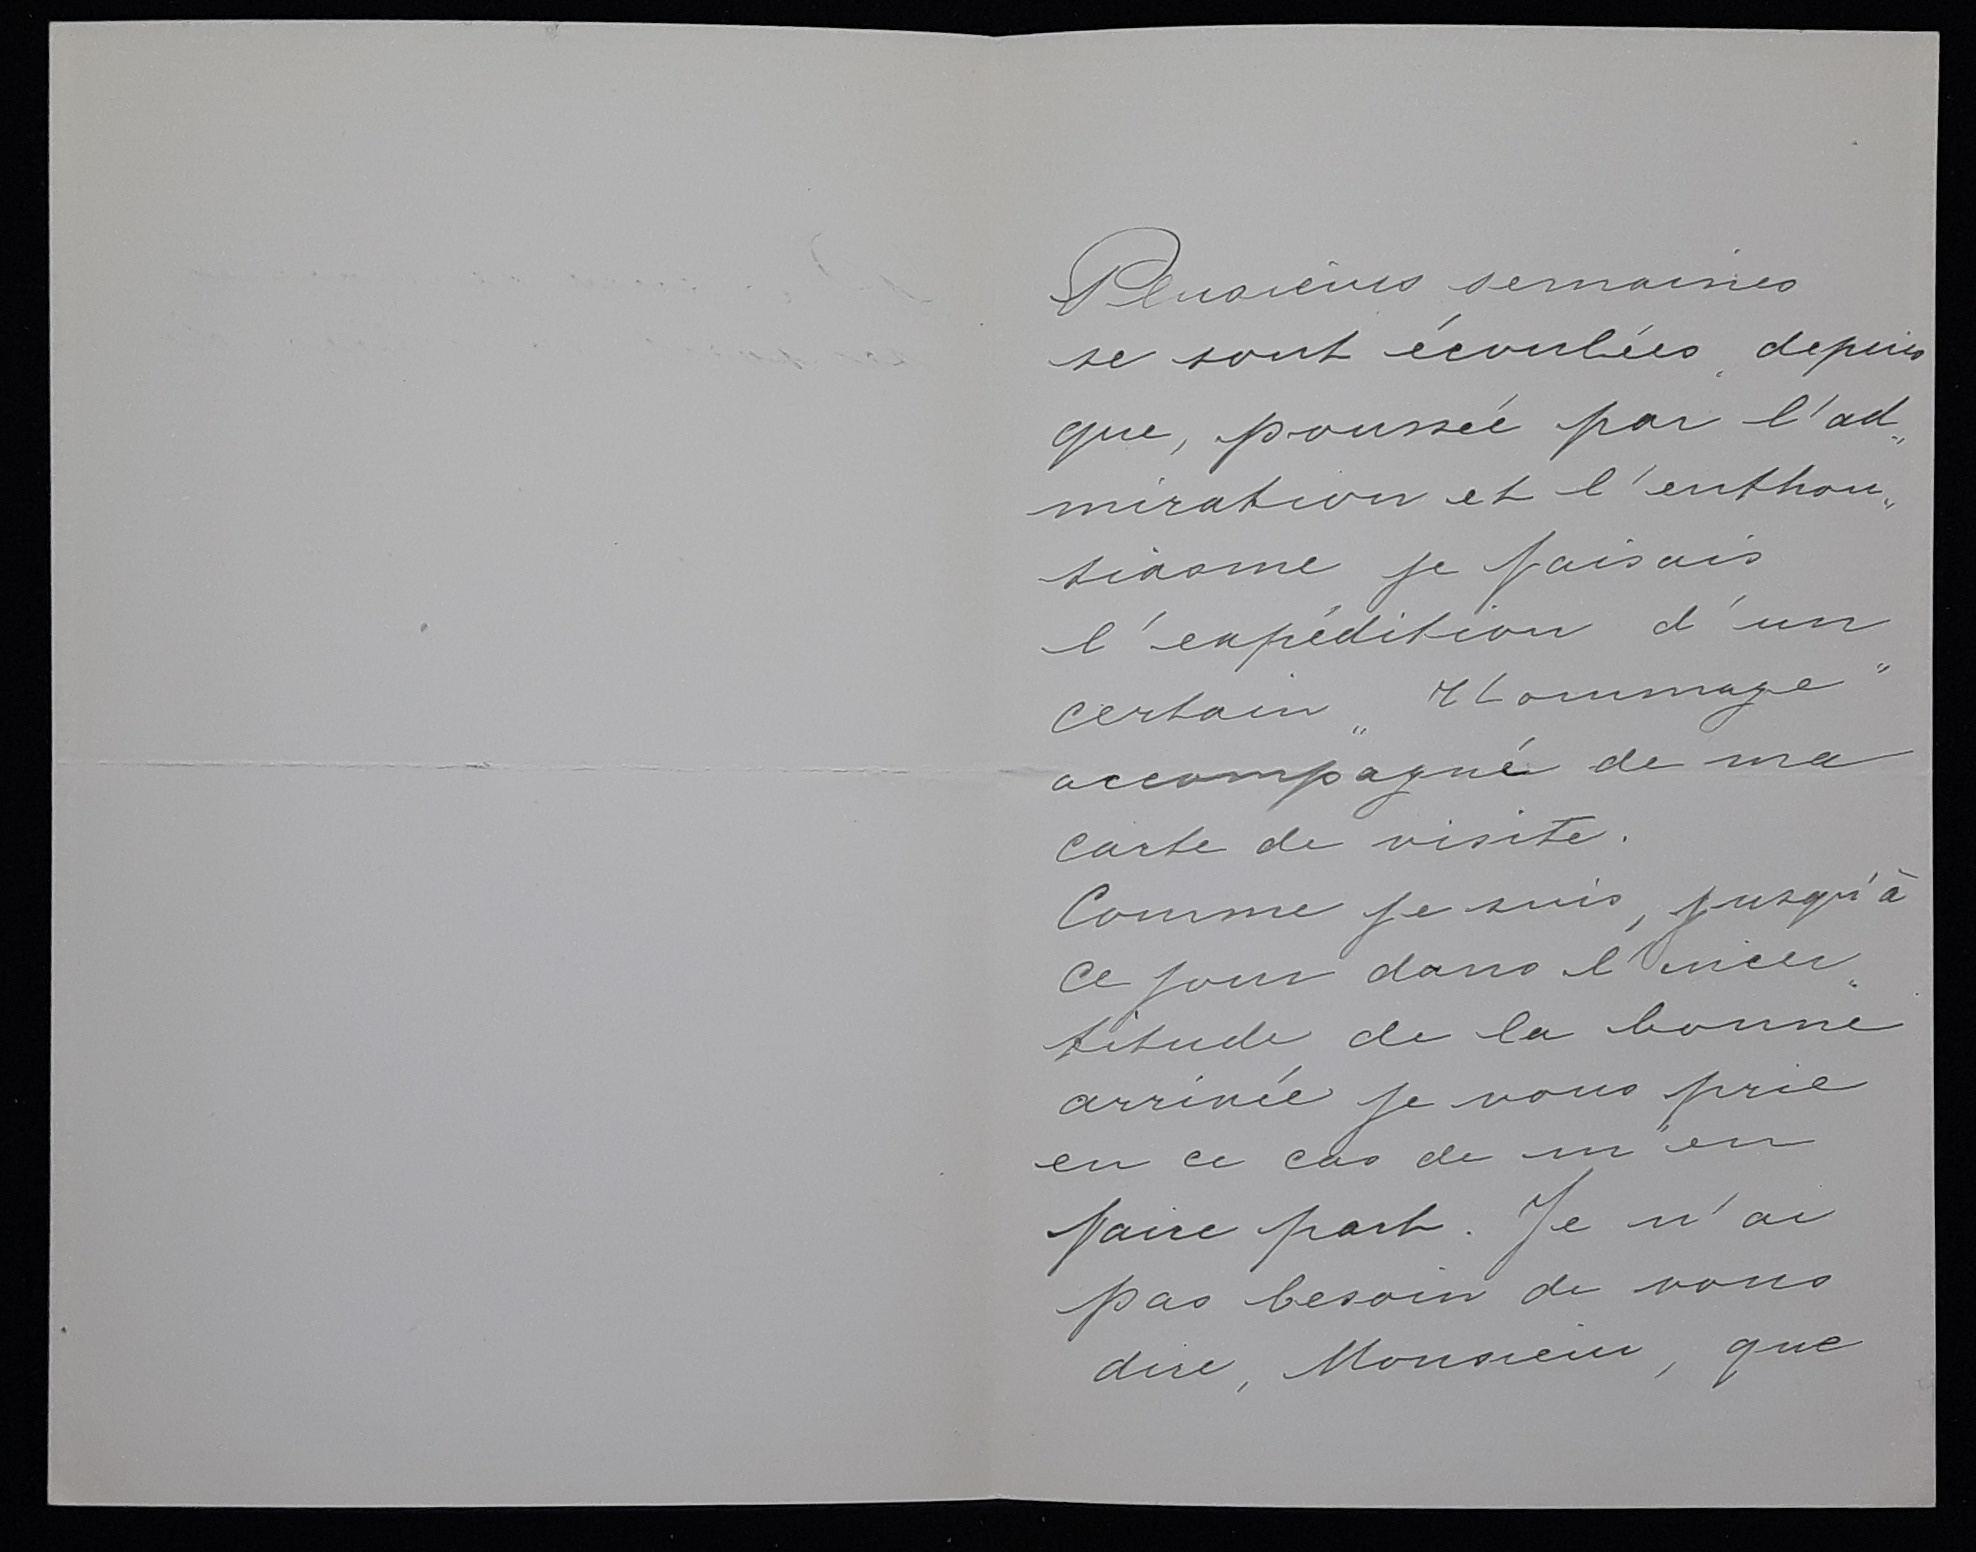 Plusieurs semaines
se sont écoulées depuis
que, poussée par l'ad„
miration et l'enthou„
siasme je faisais
l'expédition d'un
certain „Hommage“
accompagné de ma
carte de visite.
Comme je suis, jusqu'à
ce jour dans l'incer„
titude de la bonne
arrivée je vous prie
en ce cas de m'en
faire part. Je n'ai
pas besoin de vous
dire, Monsieur, que